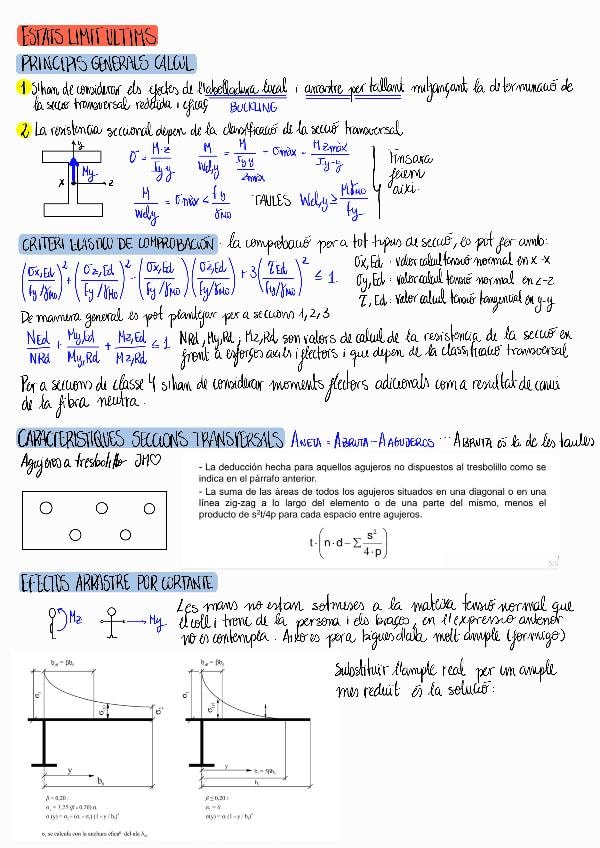 ESTATS LIMIT ULTIMS
PRINCIPIS GENERALS CALCUL
1 S'han de considerar els efectes de l'abolladura local i arrastre per tallant mitjançant la determinació de
la secció transversal reduida i eficaç BUCKLING
2 La resistencia seccional depen de la classificació de la secció transversal
y
My
x
z
σ = M·z / Iy-y
M / Wel,y = M / (Iyy / zmàx) = σmàx = M zmàx / Iy-y
M / Wel,y = σmàx < fy / γM0 TAULES Wel,y ≥ M γM0 / fy
Fins ara
feiem
així.
CRITERI ELASTICO DE COMPROBACIÓN · la comprobació per a tot tipus de secció, es pot fer amb:
(σx,Ed / fy/γM0)² + (σz,Ed / fy/γM0)² - (σx,Ed / fy/γM0)(σz,Ed / fy/γM0) + 3(τEd / fy/γM0)² ≤ 1.
σx,Ed : valor calcul tensió normal en x-x
σy,Ed : valor calcul tensió normal en z-z
τ,Ed : valor calcul tensió tangencial en y-y
De manera general es pot plantejar per a seccions 1,2,3
NEd / NRd + My,Ed / My,Rd + Mz,Ed / Mz,Rd ≤ 1 NRd, My,Rd, Mz,Rd son valors de calcul de la resistencia de la secció en
front a esforços axils i flectors i que depen de la classificació transversal
Per a seccions de classe 4 s'han de considerar moments flectors adicionals com a resultat de canvi
de la fibra neutra.
CARACTERISTIQUES SECCIONS TRANSVERSALS ANETA = ABRUTA - AAGUJEROS ··· ABRUTA és la de les taules
Agujeros a tresbolillo
- La deducción hecha para aquellos agujeros no dispuestos al tresbolillo como se
indica en el párrafo anterior.
- La suma de las áreas de todos los agujeros situados en una diagonal o en una
línea zig-zag a lo largo del elemento o de una parte del mismo, menos el
producto de s²t/4p para cada espacio entre agujeros.
t·(n·d - Σ s² / 4·p)
EFECTOS ARRASTRE POR CORTANTE
Mz
My
Les mans no estan sotmeses a la mateixa tensió normal que
el coll i tronc de la persona i els braços, en l'expressió anterior
no es contempla. Això es per a bigues d'ala molt ample (formigó)
Substituir l'ample real per un ample
mes reduit és la solució:
bef = βb0
σ1
σ2
y
b0
β > 0,20 :
σ2 = 1,25 (β - 0,20) σ1
σ (y) = σ2 + (σ1 - σ2) (1 - y / b0)⁴
bef = βb0
σ1
y
b1 = 5βb0
b0
β ≤ 0,20 :
σ2 = 0
σ(y) = σ1 (1 - y / b1)⁴
σ1 se calcula con la anchura eficaz del ala bef